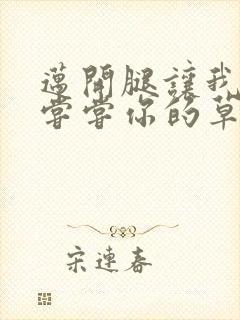 邁開腿讓我
嘗嘗你的草
宋連春